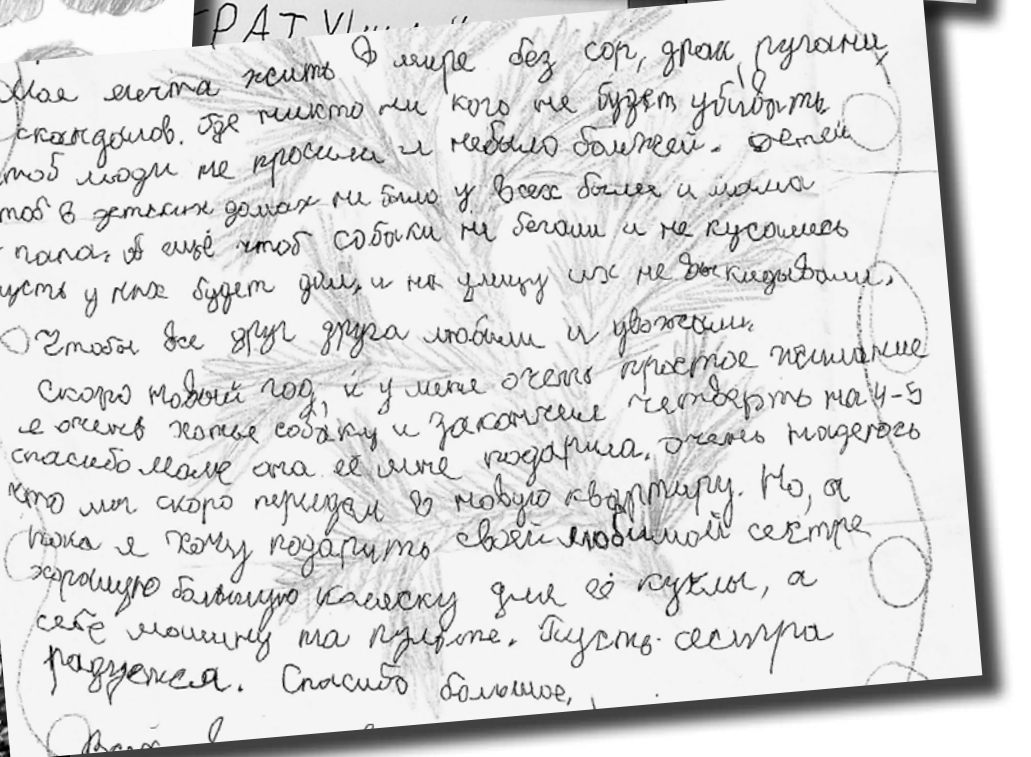 ГРАТУ
Моя мечта жить в мире без сор, драк, ругани,
скандалов. Где никто ни кого не будет убивать
чтоб люди не просили и небыло бомжей. Детей
чтоб в детских домах ни было у всех были и мама
папа. А ещё чтоб собаки ни бегали и не кусались
пусть у них будет дом, и на улицу их не выкидывали.
Чтобы все друг друга любили и уважали.
Скоро новый год, и у меня очень простое желание
я очень хотел собаку и закончил четверть на 4-5
спасибо маме она её мне подарила. Очень надеюсь
что мы скоро переедем в новую квартиру. Но, а
пока я хочу подарить своей любимой сестре
хорошую большую коляску для её куклы, а
себе машину на пульте. Пусть сестра
радуется. Спасибо большое,